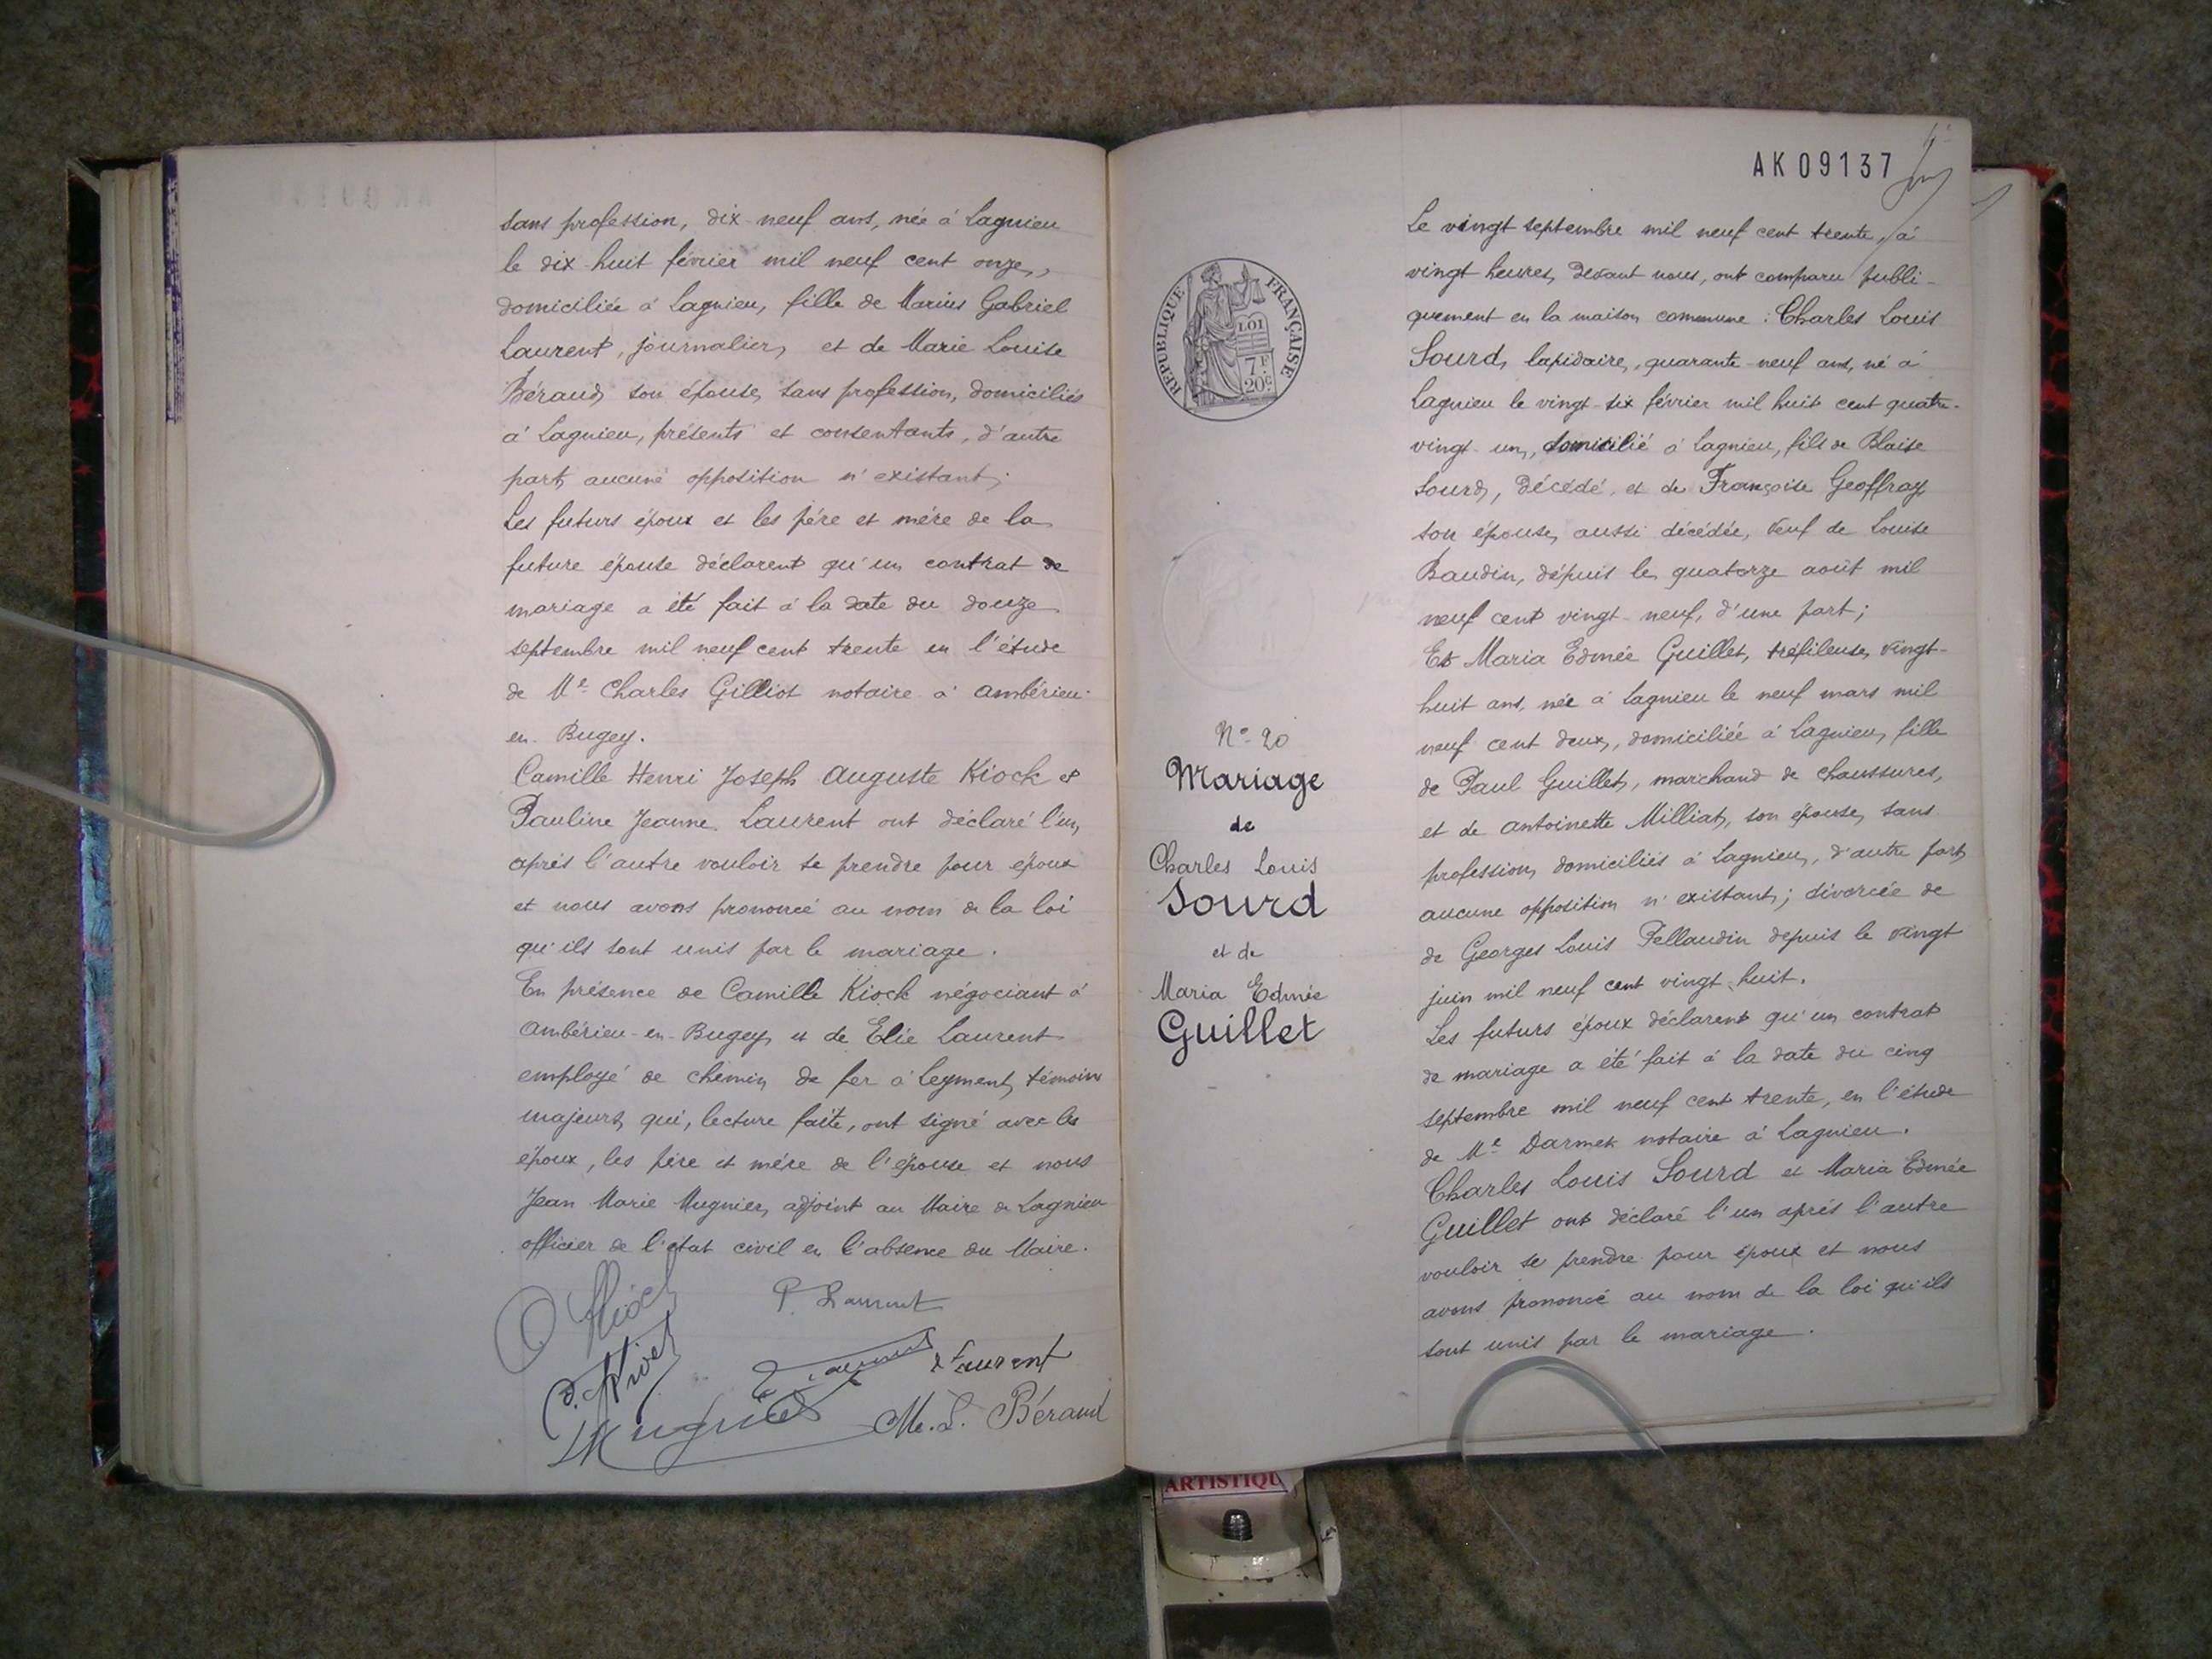 sans profession, dix-neuf ans, née à Lagnieu
le dix-huit février mil neuf cent onze,
domiciliée à Lagnieu, fille de Marius Gabriel
Laurent, journalier, et de Marie Louise
Béraud, son épouse, sans profession, domiciliés
à Lagnieu, présents et consentants, d'autre
part, aucune opposition n'existant;
Les futurs époux et les père et mère de la
future épouse déclarent qu'un contrat de
mariage a été fait à la date du douze
septembre mil neuf cent trente en l'étude
de Me Charles Gilliot notaire à Ambérieu-
en-Bugey.
Camille Henri Joseph Auguste Kiock et
Pauline Jeanne Laurent ont déclaré l'un
après l'autre vouloir se prendre pour époux
et nous avons prononcé au nom de la loi
qu'ils sont unis par le mariage.
En présence de Camille Kiock négociant à
Ambérieu-en-Bugey, et de Elie Laurent
employé de chemin de fer à Leyment, témoins
majeurs, qui, lecture faite, ont signé avec les
époux, les père et mère de l'épouse et nous
Jean Marie Mugnier, adjoint au Maire de Lagnieu
officier de l'état civil en l'absence du Maire.
P. Laurent
Laurent
Mugnier
M. L. Béraud
AK 09137
REPUBLIQUE FRANÇAISE
LOI
7F
20c
No 20
Mariage
de
Charles Louis
Sourd
et de
Maria Edmée
Guillet
Le vingt septembre mil neuf cent trente, à
vingt heures, devant nous, ont comparu publi-
quement en la maison commune : Charles Louis
Sourd, lapidaire, quarante-neuf ans, né à
Lagnieu le vingt-six février mil huit cent quatre-
vingt-un, domicilié à Lagnieu, fils de Blaise
Sourd, décédé, et de Françoise Geoffray
son épouse, aussi décédée, veuf de Louise
Baudin, dépuis le quatorze août mil
neuf cent vingt-neuf, d'une part;
Et Maria Edmée Guillet, tréfileuse, vingt-
huit ans, née à Lagnieu le neuf mars mil
neuf cent deux, domiciliée à Lagnieu, fille
de Paul Guillet, marchand de chaussures,
et de Antoinette Milliat, son épouse, sans
profession, domiciliés à Lagnieu, d'autre part,
aucune opposition n'existant; divorcée de
de Georges Louis Pellaudin depuis le vingt
juin mil neuf cent vingt huit.
Les futurs époux déclarent qu'un contrat
de mariage a été fait à la date du cinq
septembre mil neuf cent trente, en l'étude
de Me Darmet notaire à Lagnieu.
Charles Louis Sourd et Maria Edmée
Guillet ont déclaré l'un après l'autre
vouloir se prendre pour époux et nous
avons prononcé au nom de la loi qu'ils
sont unis par le mariage.
ARTISTIQU